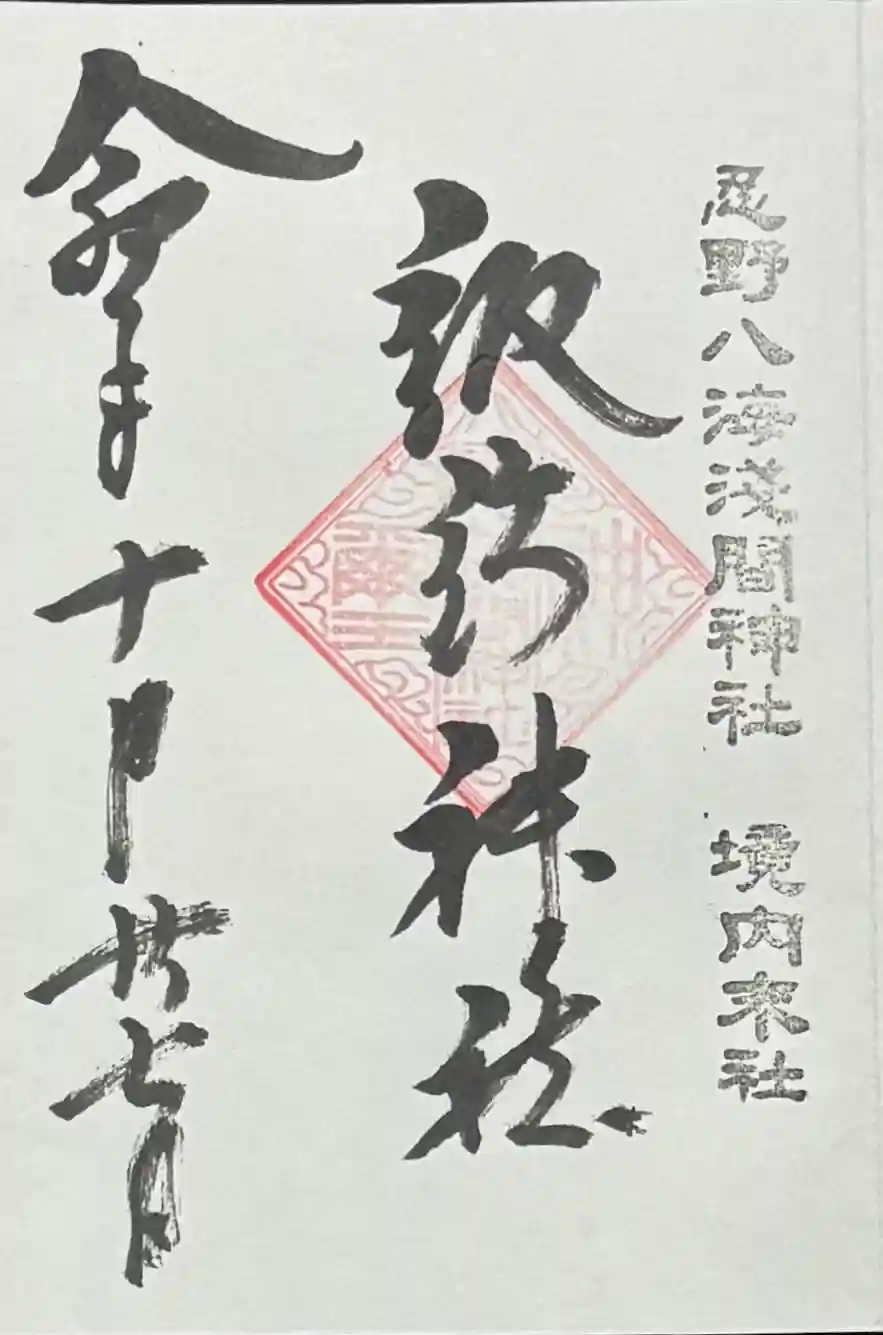 忍野八海淺間神社 境内末社
諏訪神社
令和 年十月廿七日